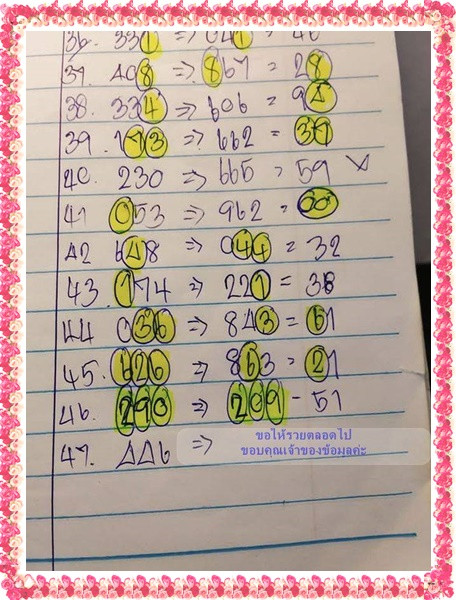 36. 331 => 041 = 40
37. 408 => 867 = 28
38. 334 => 606 = 94
39. 173 => 662 = 37
40. 230 => 665 = 59 x
41 053 => 962 =
42 648 => 044 = 32
43. 174 => 221 = 38
44 036 => 843 = 61
45. 626 => 863 = 21
46. 290 => 209 - 51
47. 446 =>
ขอให้รวยตลอดไป
ขอบคุณเจ้าของข้อมูลค่ะ